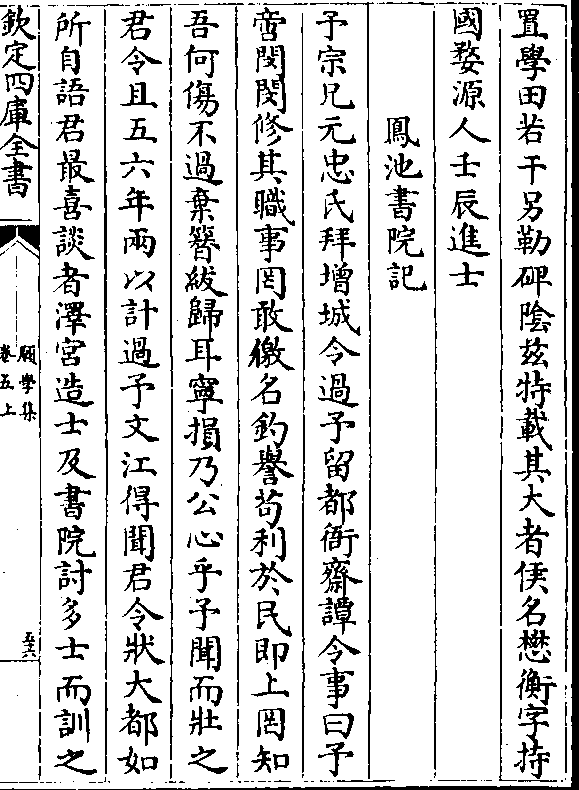 置學田若干另勒碑陰兹特載其大者侯名懋衡字持
國婺源人壬辰進士
鳳池書院記
予宗兄元忠氏拜增城令過予留都衙齋譚令事曰予
啻閔閔修其職事罔敢徼名釣譽苟利於民即上罔知
吾何傷不過棄簪紱歸耳寧損乃公心乎予聞而壯之
君令且五六年兩以計過予文江得聞君令狀大都如
所自語君最喜談者澤宮造士及書院討多士而訓之
欽定四庫全書
願學集
卷五上
五六